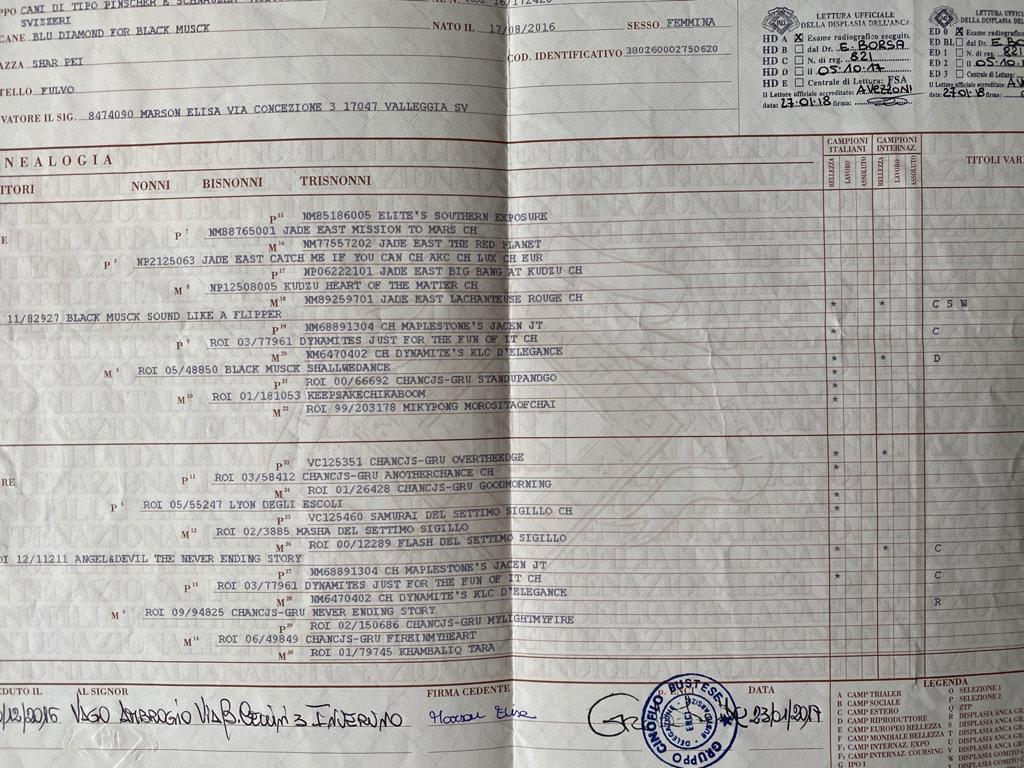 PPO CANI DI TIPO PINSCHER E SCHNAUZER
SVIZZERI
CANE BLU DIAMOND FOR BLACK MUSCK
NATO IL 17/08/2016
SESSO FEMMINA
AZZA SHAR PEI
COD. IDENTIFICATIVO 380260002750620
TELLO FULVO
VATORE IL SIG. 8474090 MARSON ELISA VIA CONCEZIONE 3 17047 VALLEGGIA SV
LETTURA UFFICIALE
DELLA DISPLASIA DELL'ANCA
HD A X Esame radiografico eseguito
HD B dal Dr. E. BORSA
HD C N. di reg. 821
HD D il 05.10.17
HD E Centrale di Lettura: FSA
Il Lettore ufficiale accreditato: A. VEZZONI
data: 27.01.18 firma:
LETTURA UFFIC
DELLA DISPLASIA DE
ED 0 X Esame radiografic
ED BL dal Dr. E BO
ED 1 N. di reg. 821
ED 2 il 05.10.
ED 3 Centrale di Lettura:
Il Lettore ufficiale accreditato: AV
data: 27.01.18 firma:
NEALOGIA
ITORI NONNI BISNONNI TRISNONNI
CAMPIONI ITALIANI
CAMPIONI INTERNAZ.
BELLEZZA LAVORO ASSOLUTO BELLEZZA LAVORO ASSOLUTO
TITOLI VAR
P15 NM85186005 ELITE'S SOUTHERN EXPOSURE
E P7 NM88765001 JADE EAST MISSION TO MARS CH
M16 NM77557202 JADE EAST THE RED PLANET
P3 NP2125063 JADE EAST CATCH ME IF YOU CAN CH AKC CH LUX CH EUR
P17 NP06222101 JADE EAST BIG BANG AT KUDZU CH
M8 NP12508005 KUDZU HEART OF THE MATTER CH
M18 NM89259701 JADE EAST LACHANTEUSE ROUGE CH
* * C S W
11/82927 BLACK MUSCK SOUND LIKE A FLIPPER
P19 NM68891304 CH MAPLESTONE'S JACEN JT
* C
P9 ROI 03/77961 DYNAMITES JUST FOR THE FUN OF IT CH
M20 NM6470402 CH DYNAMITE'S KLC D'ELEGANCE
* * D
M4 ROI 05/48850 BLACK MUSCK SHALLWEDANCE
*
P21 ROI 00/66692 CHANCJS-GRU STANDUPANDGO
*
M10 ROI 01/181053 KEEPSAKECHIKABOOM
*
M22 ROI 99/203178 MIKYPONG MOROSITAOFCHAI
P23 VC125351 CHANCJS-GRU OVERTHEEDGE
* *
RE P11 ROI 03/58412 CHANCJS-GRU ANOTHERCHANCE CH
*
M24 ROI 01/26428 CHANCJS-GRU GOODMORNING
*
P5 ROI 05/55247 LYON DEGLI ESCOLI
*
P25 VC125460 SAMURAI DEL SETTIMO SIGILLO CH
M12 ROI 02/3885 MASHA DEL SETTIMO SIGILLO
M26 ROI 00/12289 FLASH DEL SETTIMO SIGILLO
* * C
OI 12/11211 ANGEL&DEVIL THE NEVER ENDING STORY
P27 NM68891304 CH MAPLESTONE'S JACEN JT
* C
P13 ROI 03/77961 DYNAMITES JUST FOR THE FUN OF IT CH
M28 NM6470402 CH DYNAMITE'S KLC D'ELEGANCE
R
M6 ROI 09/94825 CHANCJS-GRU NEVER ENDING STORY
P29 ROI 02/150686 CHANCJS-GRU MYLIGHTMYFIRE
M14 ROI 06/49849 CHANCJS-GRU FIREINMYHEART
M30 ROI 01/79745 KHAMBALIQ TARA
DUTO IL AL SIGNOR FIRMA CEDENTE DATA
/12/2016 VAGO AMBROGIO VIA 3 INVERUNO Marson Elisa 23/01/2017
GRUPPO CINOFILO BUSTESE
DELEGAZIONE ENCI
LEGENDA
A CAMP TRIALER
B CAMP SOCIALE
C CAMP ESTERO
D CAMP RIPRODUTTORE
E CAMP EUROPEO BELLEZZA
F CAMP MONDIALE BELLEZZA
F1 CAMP INTERNAZ. EXPO
F2 CAMP INTERNAZ. COURSING
G IPO 1
O SELEZIONE 1
P SELEZIONE 2
Q ZTP
R DISPLASIA ANCA GR
S DISPLASIA ANCA GR
T DISPLASIA ANCA GR
U DISPLASIA ANCA GR
V DISPLASIA ANCA GR
W DISPLASIA GOMITO